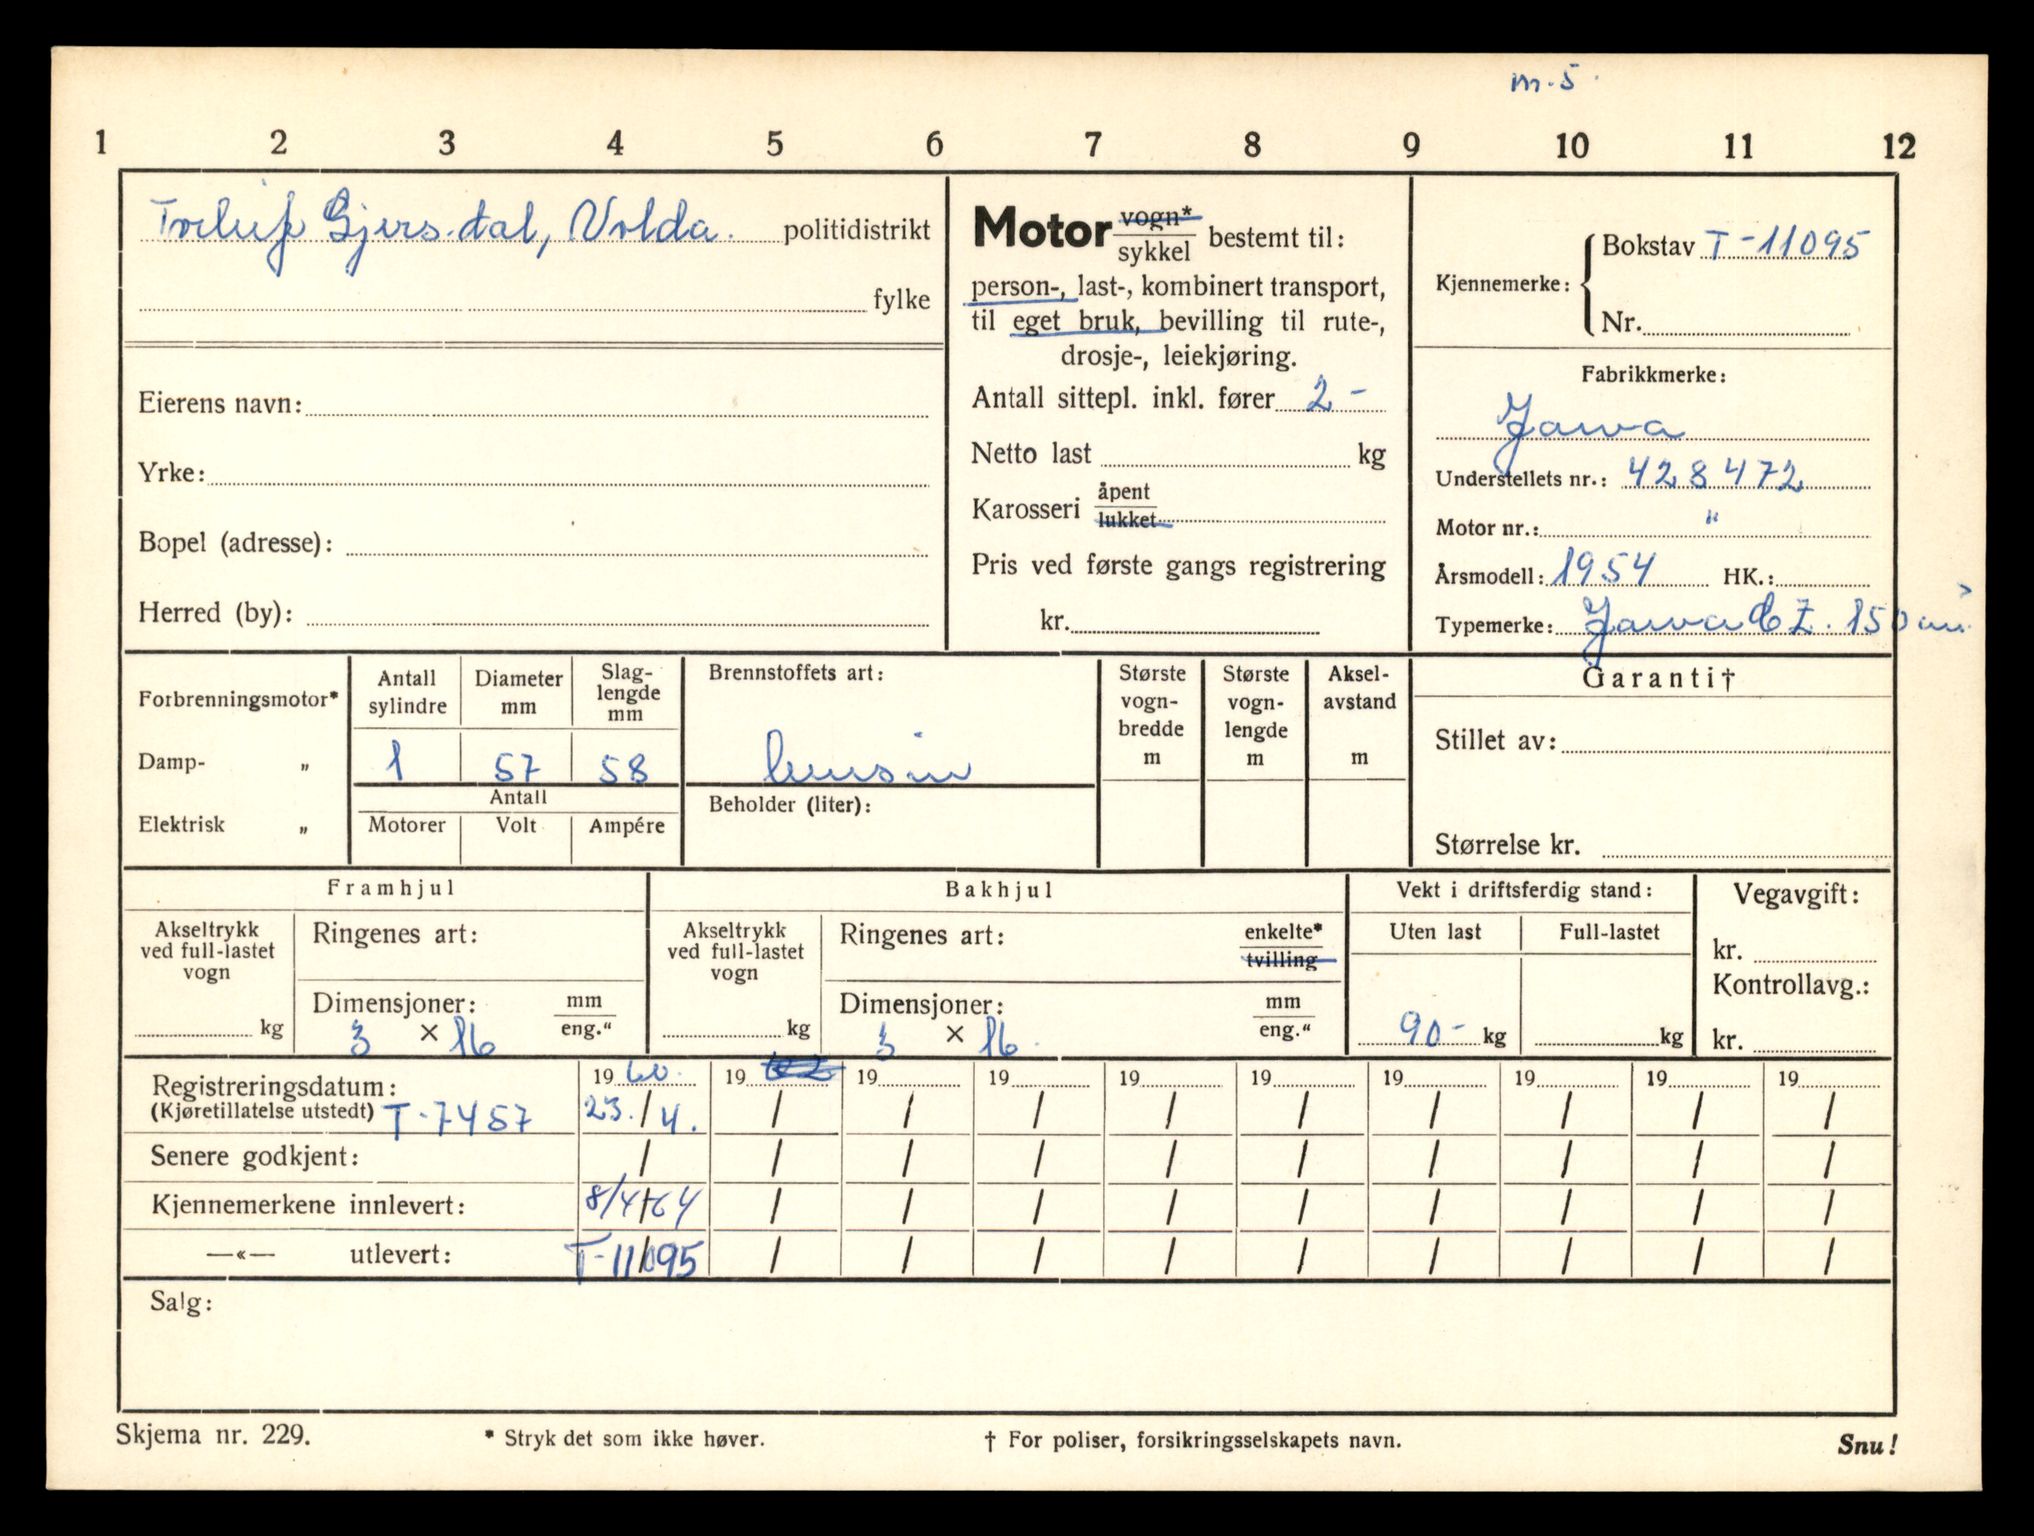 m.5.
1 2 3 4 5 6 7 8 9 10 11 12
Gjersdal, Volda. politidistrikt
fylke
Eierens navn:
Yrke:
Bopel (adresse):
Herred (by):
Motor vogn* / sykkel bestemt til:
person-, last-, kombinert transport,
til eget bruk, bevilling til rute-,
drosje-, leiekjøring.
Antall sittepl. inkl. fører 2 -
Netto last kg
Karosseri åpent / lukket
Pris ved første gangs registrering
kr.
Kjennemerke: Bokstav T-11095
Nr.
Fabrikkmerke:
Jawa
Understellets nr.: 428472
Motor nr.: "
Årsmodell: 1954 HK.:
Typemerke: Jawa CZ. 150 cm³
Forbrenningsmotor*
Damp- „
Elektrisk „
Antall sylindre Diameter mm Slag-lengde mm
1 57 58
Antall
Motorer Volt Ampére
Brennstoffets art:
bensin
Beholder (liter):
Største vogn-bredde m Største vogn-lengde m Aksel-avstand m
Garanti†
Stillet av:
Størrelse kr.
Framhjul
Akseltrykk ved full-lastet vogn
kg
Ringenes art:
Dimensjoner: mm / eng."
3 × 16
Bakhjul
Akseltrykk ved full-lastet vogn
kg
Ringenes art: enkelte* / tvilling
Dimensjoner: mm / eng."
3 × 16.
Vekt i driftsferdig stand:
Uten last Full-lastet
90- kg kg
Vegavgift:
kr.
Kontrollavg.:
kr.
Registreringsdatum: 19 60. 19 19 19 19 19 19 19 19 19
(Kjøretillatelse utstedt) T-7457 23. / 4. / / / / / / / / /
Senere godkjent: / / / / / / / / / /
Kjennemerkene innlevert: 8/4-64 / / / / / / / / /
—«— utlevert: T-11095 / / / / / / / / /
Salg:
Skjema nr. 229. * Stryk det som ikke høver. † For poliser, forsikringsselskapets navn. Snu!